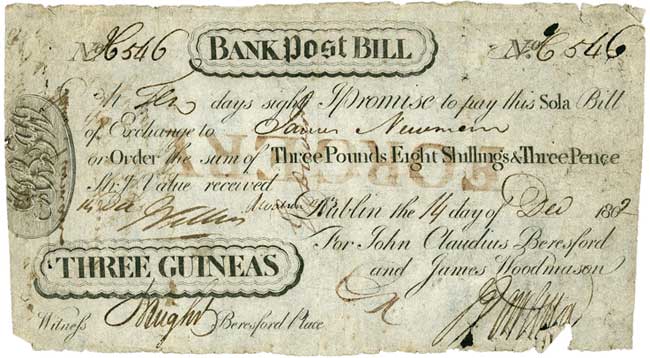 No. C546 BANK Post BILL No. C546
At Ten days sight I promise to pay this Sola Bill
of Exchange to James Newman
or Order the sum of Three Pounds Eight Shillings & Three Pence
Value received
Dublin the 14 day of Dec 1802
For John Claudius Beresford
THREE GUINEAS and James Woodmason
Witness Beresford Place
FORGERY